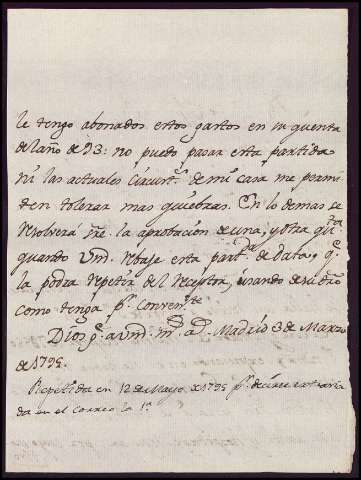 le tengo abonados estos gastos en su quenta
del año de 93: no puedo pasar esta partida
ni las actuales circunt.s de mi casa me permi
ten tolerar mas quiebras. En lo demas se
resolverá s̃re. la aprobacion de una, y otra qu.ta
quando Vmd. rebaje esta part.da de data, q.e
la podra repetir del Receptor, usando de su dro
como tenga p.r conven.te
Dios g.e a Vmd. m.s a.s Madrid 3 de Marzo
de 1795.
Repetida en 12 de Mayo de 1795 p.r decirse extravia
da en el correo la 1.a